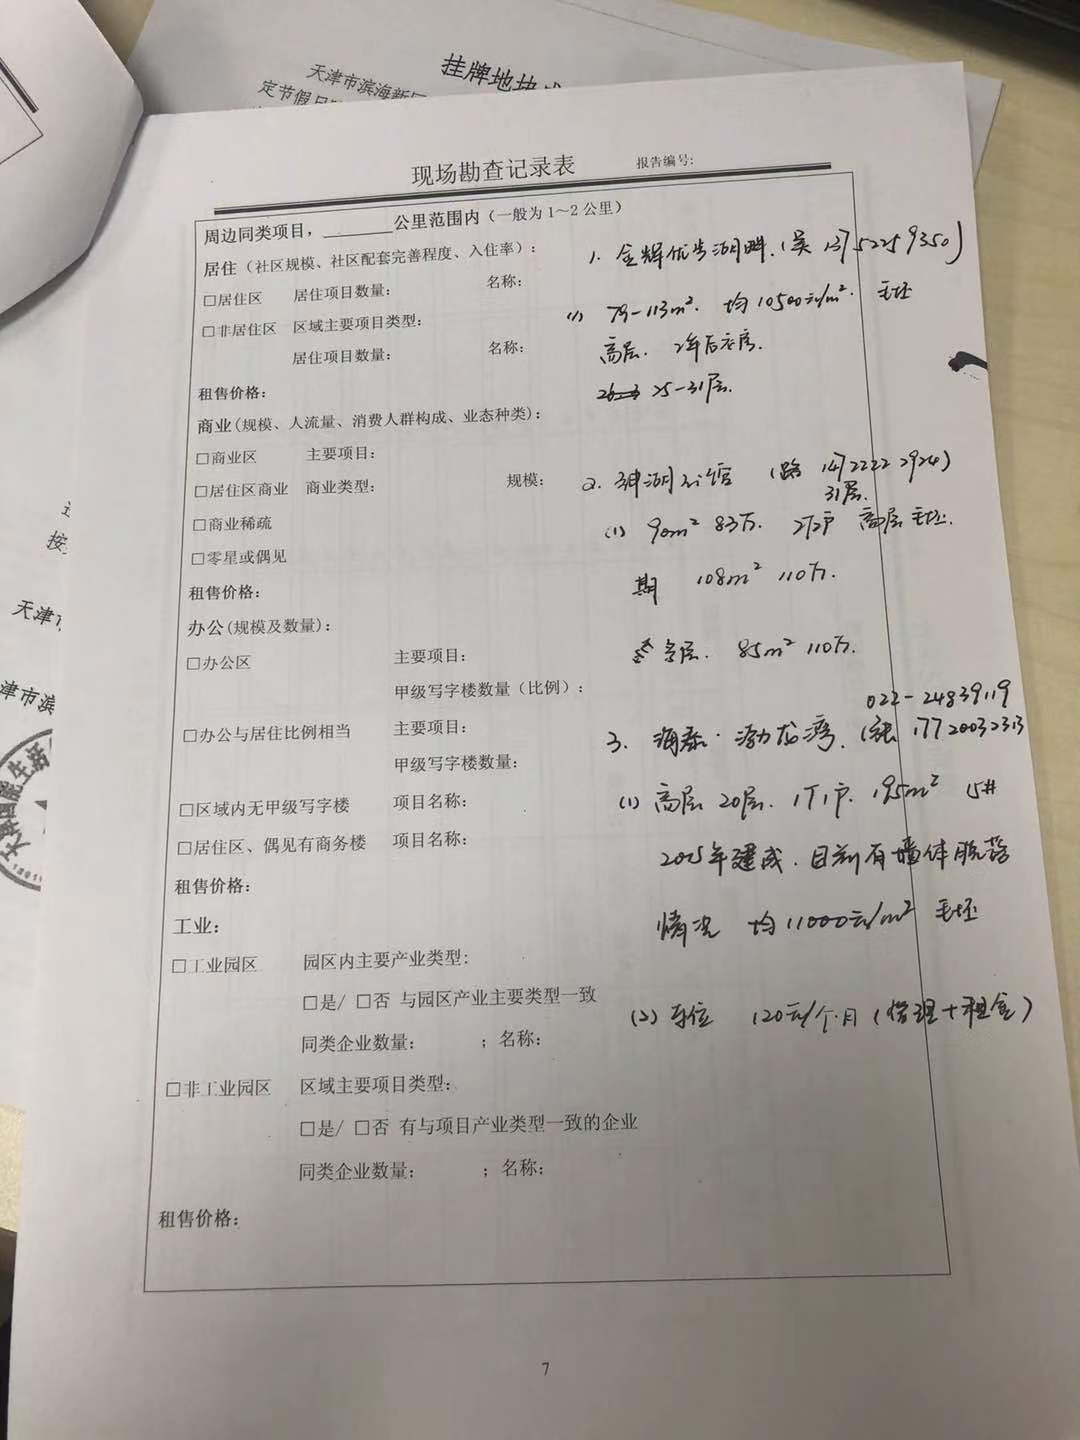 挂牌地块
天津市滨海新区
定节假日
现场勘查记录表 报告编号:
周边同类项目，________公里范围内（一般为1～2公里）
居住（社区规模、社区配套完善程度、入住率）：
1. 金辉优步湖畔.（吴 13752259350）
□居住区 居住项目数量： 名称：
□非居住区 区域主要项目类型：
(1) 79-113m². 均10500元/m². 毛坯
居住项目数量： 名称：
高层. 2年后交房.
租售价格：
25-31层.
商业(规模、人流量、消费人群构成、业态种类)：
□商业区 主要项目：
□居住区商业 商业类型： 规模：
2. 湖公馆 （路 14722222924）
31层.
□商业稀疏
(1) 90m² 83万. 2T2户 高层毛坯.
□零星或偶见
租售价格：
期 108m² 110万.
办公(规模及数量)：
□办公区 主要项目：
层. 85m² 110万.
甲级写字楼数量（比例）：
022-24839119
□办公与居住比例相当 主要项目：
3. 海泰·渤龙湾.（张 17720032313
甲级写字楼数量：
□区域内无甲级写字楼 项目名称：
(1) 高层20层. 1T1户. 195m² 15#
□居住区、偶见有商务楼 项目名称：
2015年建成. 目前有墙体脱落
租售价格：
情况 均11000元/m² 毛坯
工业：
□工业园区 园区内主要产业类型:
□是/ □否 与园区产业主要类型一致
(2) 车位 120元/个·月（管理+租金）
同类企业数量： ；名称：
□非工业园区 区域主要项目类型：
□是/ □否 有与项目产业类型一致的企业
同类企业数量： ；名称：
租售价格：
7